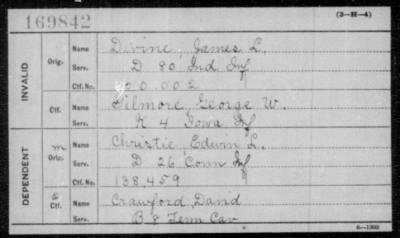 169842
(3-H-4)
INVALID
Orig.
Name Divine, James L.
Serv. D 80 Ind Inf
Ctf. No. 20.002
Ctf.
Name Filmore, George W.
Serv. K 4 Iowa Inf
DEPENDENT
m
Orig.
Name Christie, Edwin L.
Serv. D 26 Conn Inf
Ctf. No. 138,459
Ctf.
Name Crawford, David
Serv. B 8 Tenn Cav